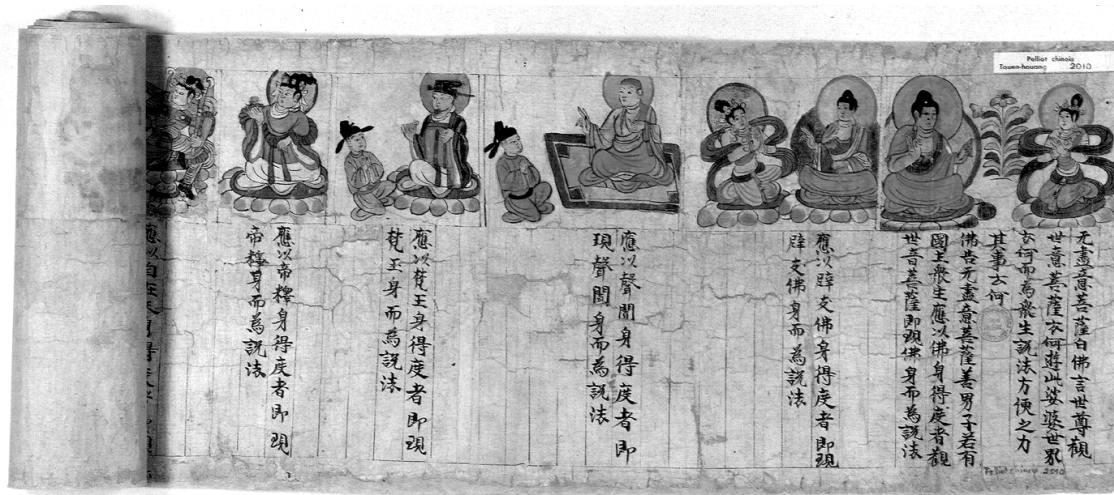 Pelliot chinois
Touen-houang 2010
无盡意菩薩白佛言世尊觀
世音菩薩云何遊此娑婆世界
云何而為衆生說法方便之力
其事云何
佛告无盡意菩薩善男子若有
國土衆生應以佛身得度者觀
世音菩薩即現佛身而為說法
應以辟支佛身得度者即現
辟支佛身而為說法
應以聲聞身得度者即
現聲聞身而為說法
應以梵王身得度者即現
梵王身而為說法
應以帝釋身得度者即現
帝釋身而為說法
應以自在天身得度者即現
Pelliot chinois 2010